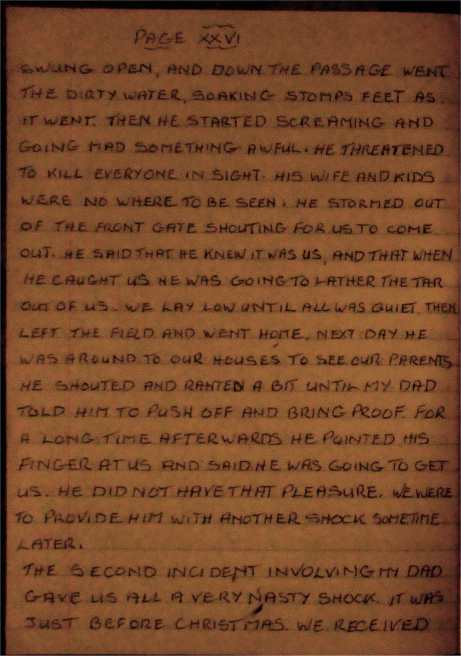 PAGE XXVI
SWUNG OPEN, AND DOWN THE PASSAGE WENT
THE DIRTY WATER, SOAKING STOMPS FEET AS
IT WENT. THEN HE STARTED SCREAMING AND
GOING MAD SOMETHING AWFUL. HE THREATENED
TO KILL EVERYONE IN SIGHT. HIS WIFE AND KIDS
WERE NO WHERE TO BE SEEN. HE STORMED OUT
OF THE FRONT GATE SHOUTING FOR US TO COME
OUT. HE SAID THAT HE KNEW IT WAS US, AND THAT WHEN
HE CAUGHT US HE WAS GOING TO LATHER THE TAR
OUT OF US. WE LAY LOW UNTIL ALL WAS QUIET, THEN
LEFT THE FIELD AND WENT HOME. NEXT DAY HE
WAS AROUND TO OUR HOUSES TO SEE OUR PARENTS
HE SHOUTED AND RANTED A BIT UNTIL MY DAD
TOLD HIM TO PUSH OFF AND BRING PROOF. FOR
A LONG TIME AFTERWARDS HE POINTED HIS
FINGER AT US AND SAID HE WAS GOING TO GET
US. HE DID NOT HAVE THAT PLEASURE. WE WERE
TO PROVIDE HIM WITH ANOTHER SHOCK SOMETIME
LATER.
THE SECOND INCIDENT INVOLVING MY DAD
GAVE US ALL A VERY NASTY SHOCK. IT WAS
JUST BEFORE CHRISTMAS. WE RECEIVED